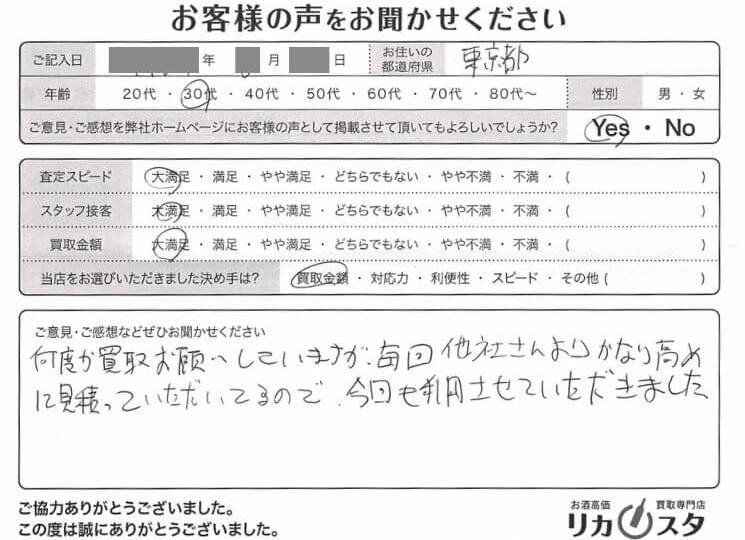 お客様の声をお聞かせください
ご記入日 年 月 日 お住いの都道府県 東京都
年齢 20代 ・ 30代 ・ 40代 ・ 50代 ・ 60代 ・ 70代 ・ 80代～ 性別 男 ・ 女
ご意見・ご感想を弊社ホームページにお客様の声として掲載させて頂いてもよろしいでしょうか? Yes ・ No
査定スピード 大満足 ・ 満足 ・ やや満足 ・ どちらでもない ・ やや不満 ・ 不満 ・ ( )
スタッフ接客 大満足 ・ 満足 ・ やや満足 ・ どちらでもない ・ やや不満 ・ 不満 ・ ( )
買取金額 大満足 ・ 満足 ・ やや満足 ・ どちらでもない ・ やや不満 ・ 不満 ・ ( )
当店をお選びいただきました決め手は? 買取金額 ・ 対応力 ・ 利便性 ・ スピード ・ その他 ( )
ご意見・ご感想などぜひお聞かせください
何度か買取お願いしていますが、毎回他社さんよりかなり高め
に見積っていただいてるので、今回も利用させていただきました
ご協力ありがとうございました。
この度は誠にありがとうございました。
お酒高価 買取専門店
リカスタ